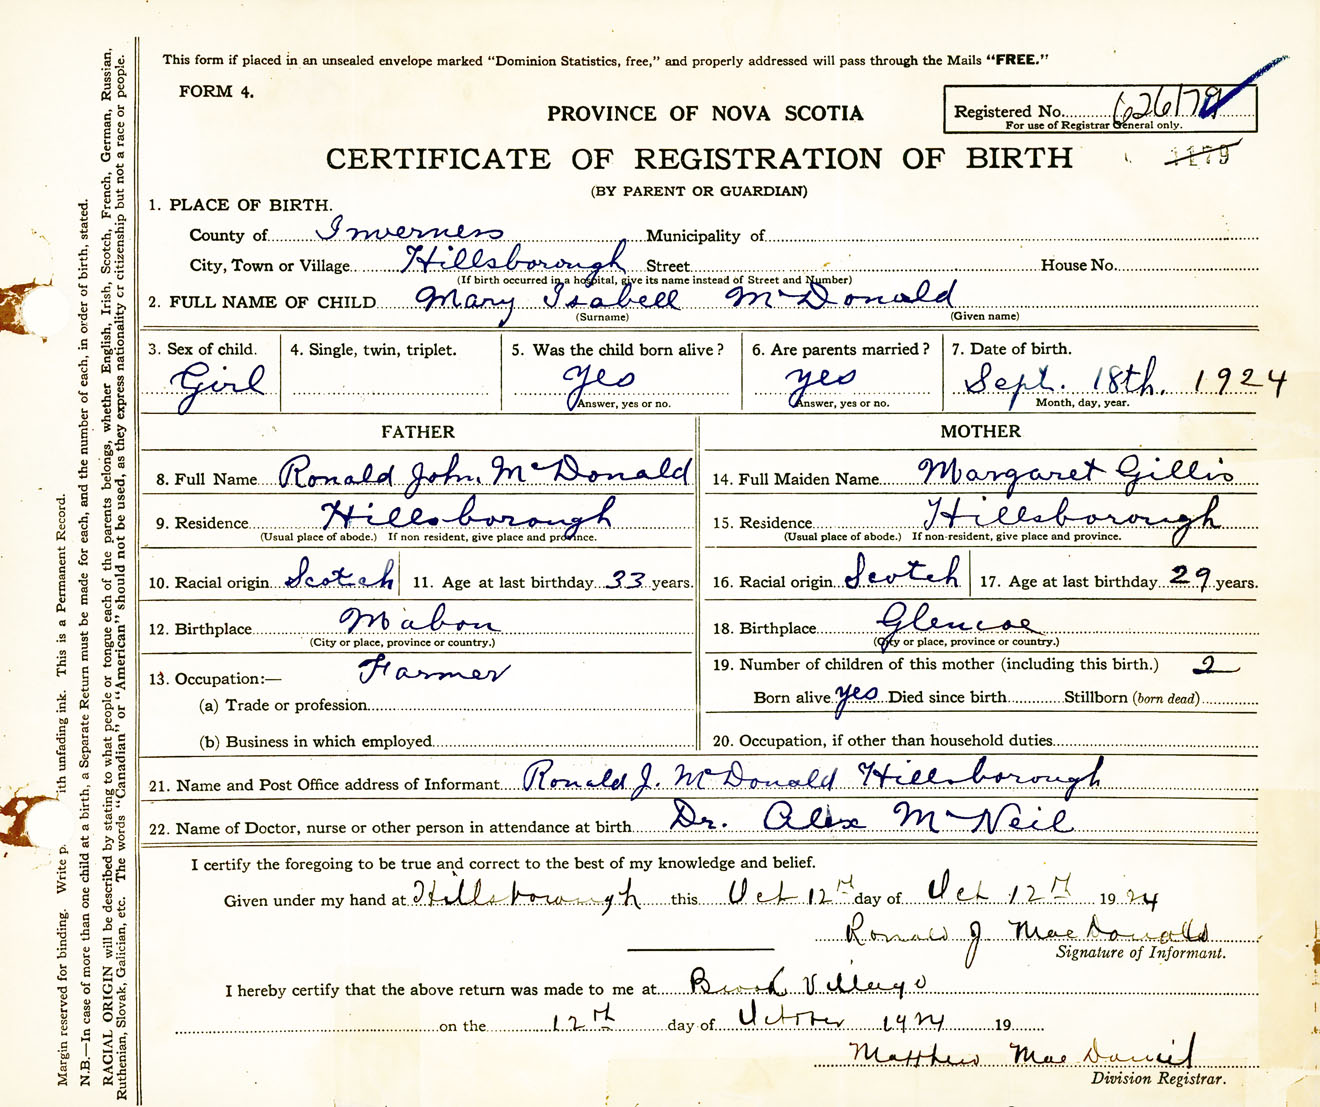 This form if placed in an unsealed envelope marked "Dominion Statistics, free," and properly addressed will pass through the Mails "FREE."
FORM 4.
PROVINCE OF NOVA SCOTIA
Registered No. 626179
For use of Registrar General only.
CERTIFICATE OF REGISTRATION OF BIRTH
1179
(BY PARENT OR GUARDIAN)
1. PLACE OF BIRTH.
County of Inverness Municipality of
City, Town or Village Hillsborough Street House No.
(If birth occurred in a hospital, give its name instead of Street and Number)
2. FULL NAME OF CHILD Mary Isabell McDonald
(Surname) (Given name)
3. Sex of child. 4. Single, twin, triplet. 5. Was the child born alive? 6. Are parents married? 7. Date of birth.
Girl yes yes Sept. 18th. 1924
Answer, yes or no. Answer, yes or no. Month, day, year.
FATHER MOTHER
8. Full Name Ronald John McDonald 14. Full Maiden Name Margaret Gillis
9. Residence Hillsborough 15. Residence Hillsborough
(Usual place of abode.) If non resident, give place and province. (Usual place of abode.) If non-resident, give place and province.
10. Racial origin Scotch 11. Age at last birthday 33 years. 16. Racial origin Scotch 17. Age at last birthday 29 years.
12. Birthplace Mabou 18. Birthplace Glencoe
(City or place, province or country.) (City or place, province or country.)
13. Occupation:— Farmer 19. Number of children of this mother (including this birth.) 2
(a) Trade or profession Born alive yes Died since birth Stillborn (born dead)
(b) Business in which employed 20. Occupation, if other than household duties
21. Name and Post Office address of Informant Ronald J. McDonald Hillsborough
22. Name of Doctor, nurse or other person in attendance at birth Dr. Alex McNeil
I certify the foregoing to be true and correct to the best of my knowledge and belief.
Given under my hand at Hillsborough this Oct 12th day of Oct 12th 1924
Ronald J MacDonald
Signature of Informant.
I hereby certify that the above return was made to me at Brook Village
on the 12th day of October 1924 19
Matthew MacDaniel
Division Registrar.
Margin reserved for binding. Write p ith unfading ink. This is a Permanent Record.
N.B.—In case of more than one child at a birth, a Separate Return must be made for each, and the number of each, in order of birth, stated.
RACIAL ORIGIN will be described by stating to what people or tongue each of the parents belongs, whether English, Irish, Scotch, French, German, Russian,
Ruthenian, Slovak, Galician, etc. The words "Canadian" or "American" should not be used, as they express nationality or citizenship but not a race or people.